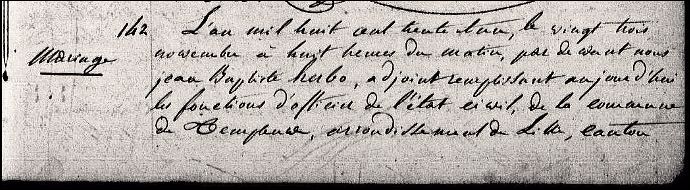 142
Mariage
L'an mil huit cent trente un, le vingt trois
novembre à huit heures du matin, par devant nous
jean Baptiste herbo, adjoint remplissant aujourd'hui
les fonctions d'officier de l'état civil, de la commune
de Templeuve, arrondissement de Lille, canton